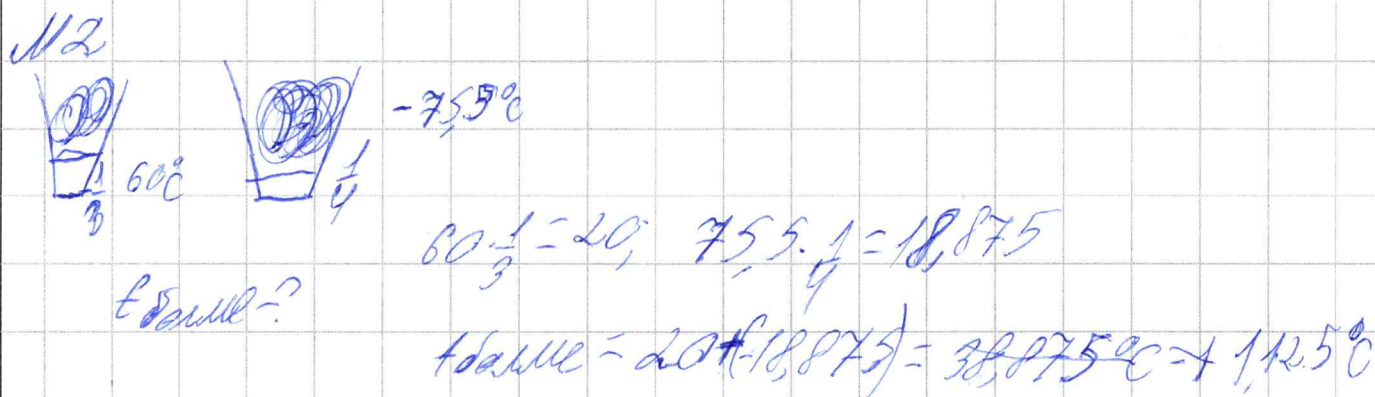 №2
-75,5°C
1/3 60°C 1/4
60·1/3=20; 75,5·1/4=18,875
t бөлме-?
t бөлме = 20+(-18,875) = 38,875°C = +1,125°C